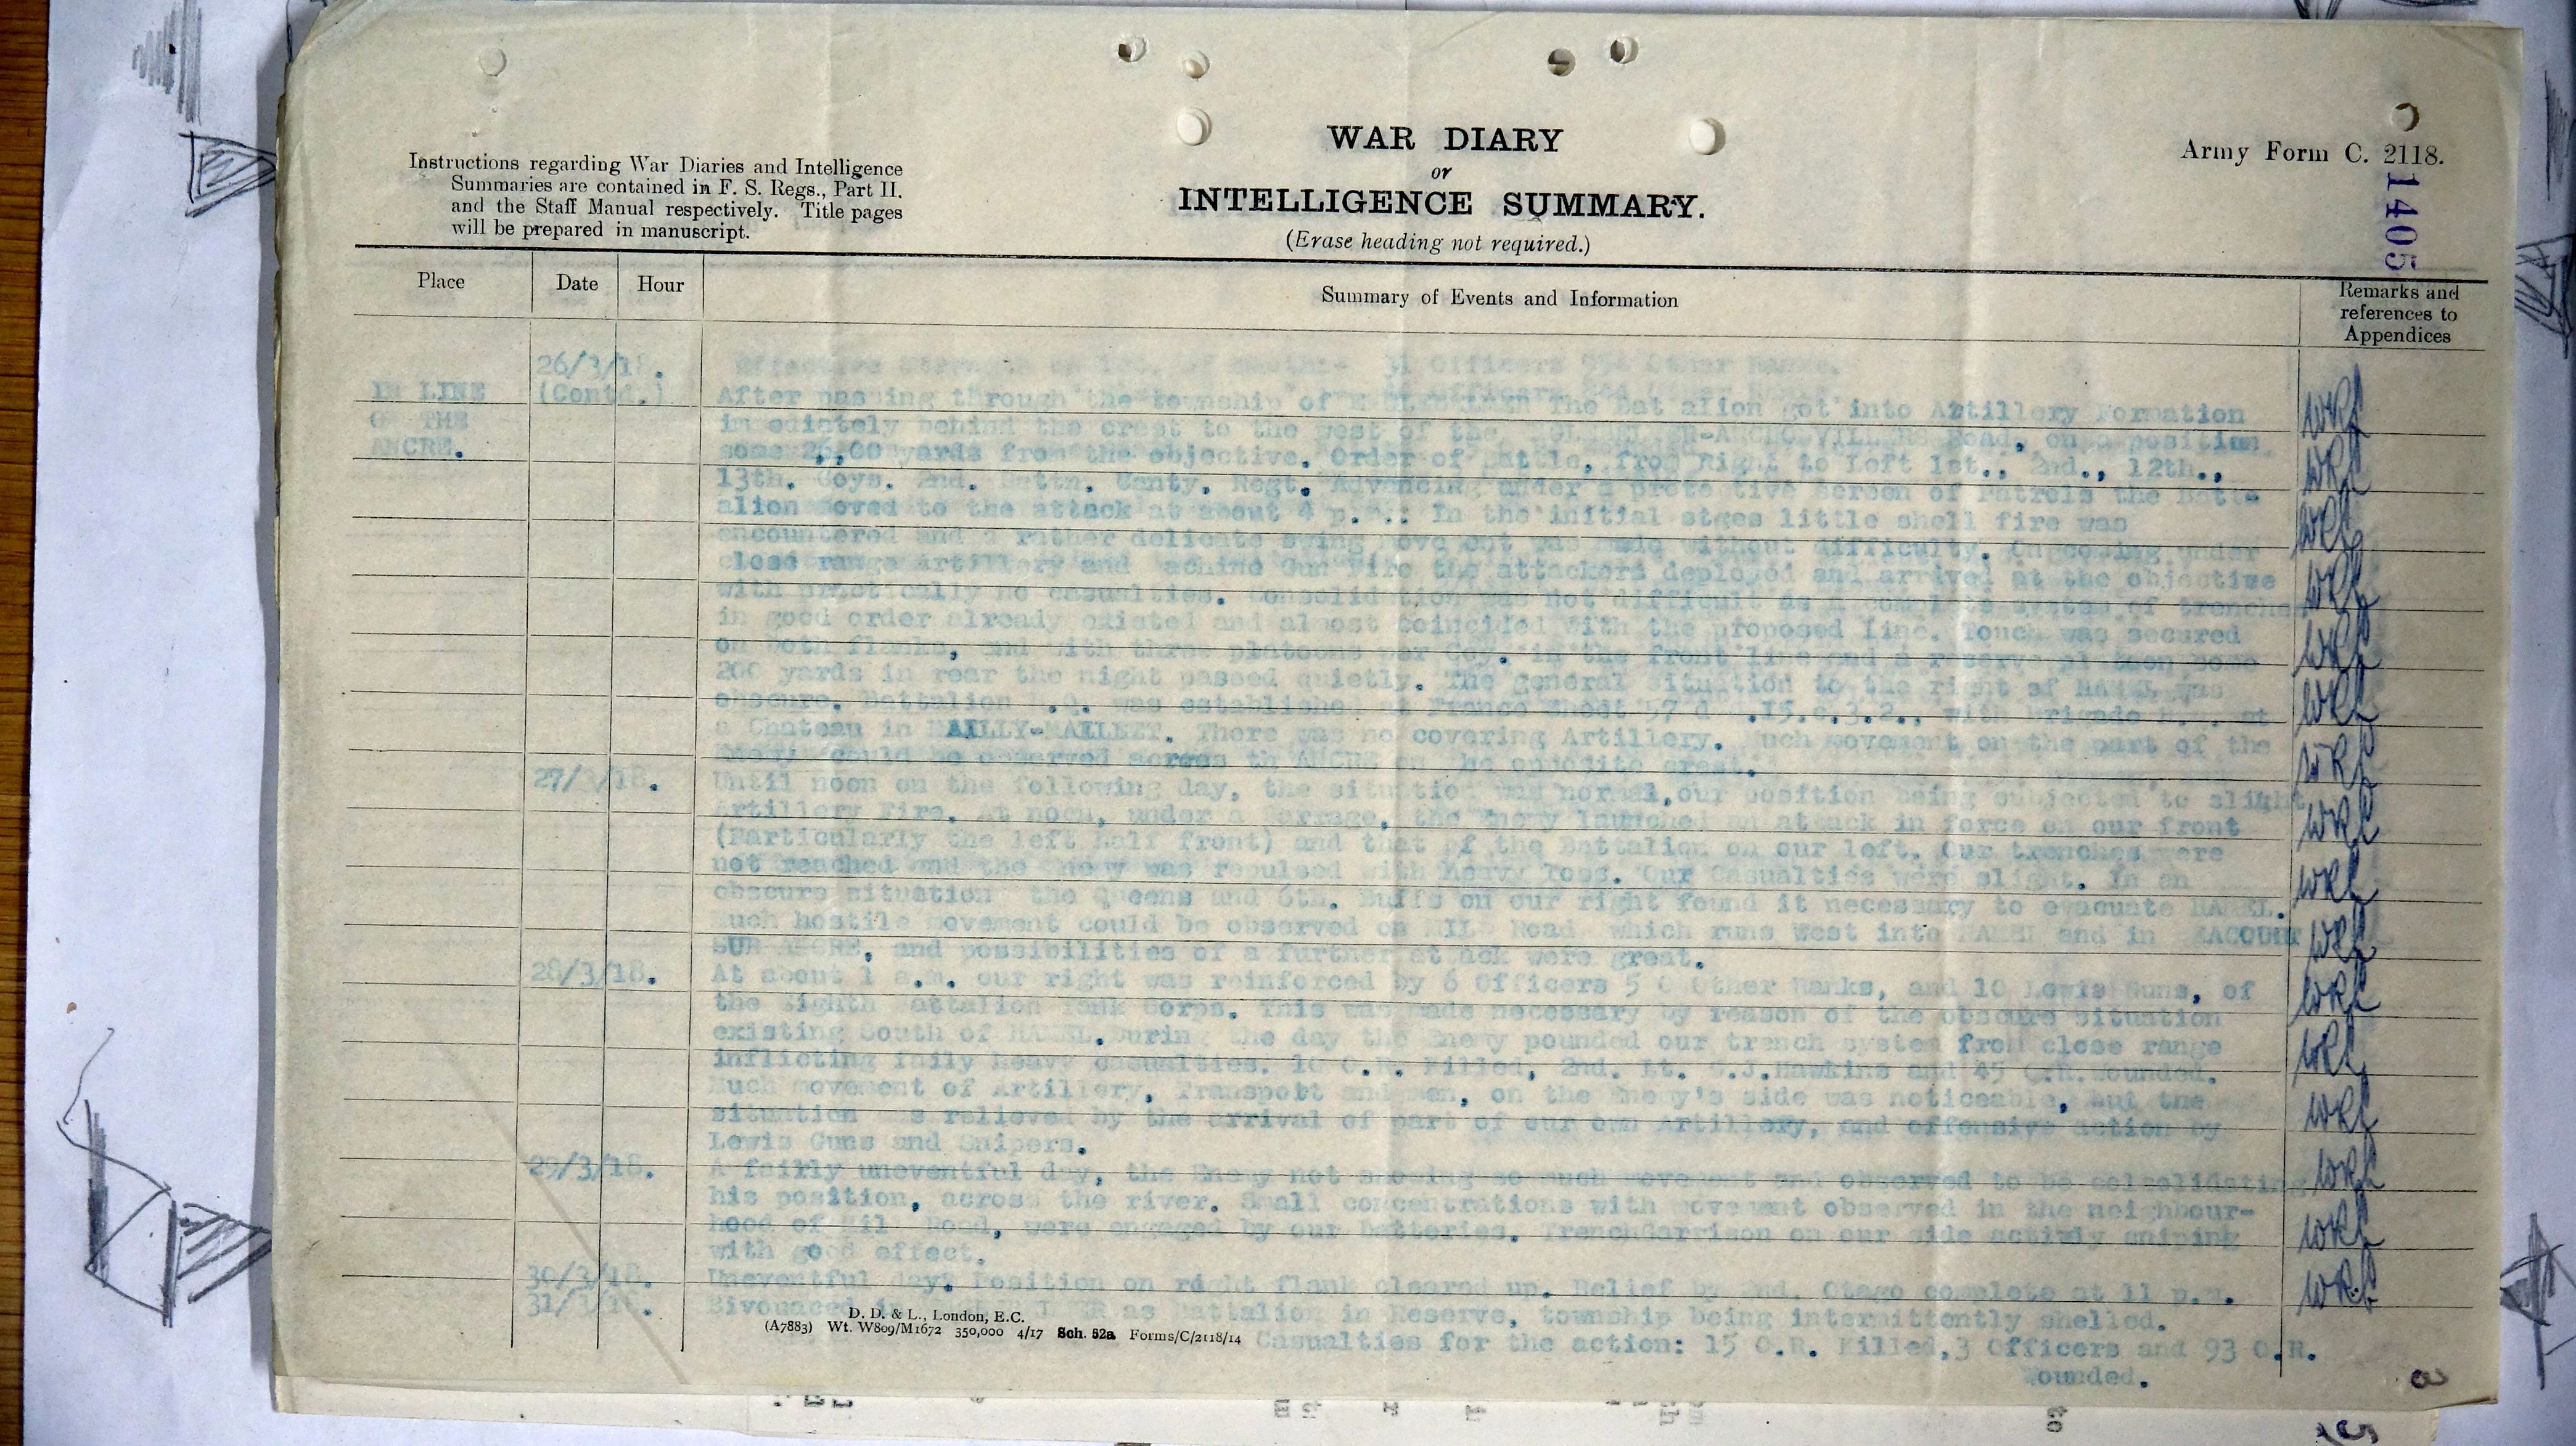 Army Form C. 2118.
WAR DIARY
or
INTELLIGENCE SUMMARY.
(Erase heading not required.)
Instructions regarding War Diaries and Intelligence
Summaries are contained in F. S. Regs., Part II.
and the Staff Manual respectively. Title pages
will be prepared in manuscript.
1405
Place Date Hour Summary of Events and Information Remarks and
references to
Appendices
26/3/18. Effective Strength 31 Officers Other Ranks.
IN LINE (Contd.) After passing through the township of The Battalion got into Artillery Formation
OF THE immediately behind the crest to the west of the Road, on a position
ANCRE. some 26,00 yards from the objective. Order of Battle, from Right to Left 1st., 2nd., 12th.,
13th. Coys. 2nd. Battn. Canty. Regt. Advancing under a protective screen of Patrols the Batt-
alion moved to the attack at about 4 p.m.: In the initial stges little shell fire was
encountered and a rather delicate swing movement was made without difficulty. On coming under
close range Artillery and Machine Gun Fire the attackers deployed and arrived at the objective
with practically no casualties. Consolidation was not difficult as a complete system of trenches
in good order already existed and almost coincided with the proposed line. Touch was secured
on both flanks, and with three platoons per Coy. in the front line and a reserve platoon some
200 yards in rear the night passed quietly. The general situation to the right of HAMEL was
obscure. Battalion H.Q. was established at France Sheet 57 d .15.c.3.2., with Brigade H.Q. at
a Chateau in MAILLY-MAILLET. There was no covering Artillery. Much movement on the part of the
Enemy could be observed across th ANCRE on the opposite crest.
27/3/18. Until noon on the following day, the situation was normal,our position being subjected to slight
Artillery Fire. At noon, under a barrage, the Enemy launched an attack in force on our front
(Particularly the left half front) and that of the Battalion on our left. Our trenches were
not reached and the Enemy was repulsed with heavy loss. Our Casualties were slight. In an
obscure situation the Queens and 6th. Buffs on our right found it necessary to evacuate HAMEL.
Much hostile movement could be observed on MILL Road which runs west into HAMEL and in
SUR ANCRE, and possibilities of a further attack were great.
28/3/18. At about 1 a.m. our right was reinforced by 6 Officers Other Ranks, and 10 Lewis Guns, of
the Eighth Battalion Tank Corps. This was made necessary by reason of the obscure situation
existing South of HAMEL. During the day the Enemy pounded our trench system from close range
inflicting faily heavy casualties. 10 O.R. Killed, 2nd. Lt. J.Hawkins and 45 O.R. Wounded.
Much movement of Artillery, Transport and men, on the Enemy's side was noticeable, but the
situation was relieved by the arrival of part of our own Artillery, and offensive action by
Lewis Guns and Snipers.
29/3/18. A faifly uneventful day, the Enemy not showing so much movement and observed to be colsolidating
his position, across the river. Small concentrations with movement observed in the neighbour-
hood of Mill Road, were engaged by our Batteries. TrenchGarrison on our side activly sniping
with good effect.
30/3/18. Uneventful day. Position on right flank cleared up. Relief by 2nd. Otago complete at 11 p.m.
31/3/18. Bivouaced in as Battalion in Reserve, township being intermittently shelled.
Casualties for the action: 15 O.R. Killed,3 Officers and 93 O.R.
Wounded.
D. D. & L., London, E.C.
(A7883) Wt. W809/M1672 350,000 4/17 Sch. 52a Forms/C/2118/14